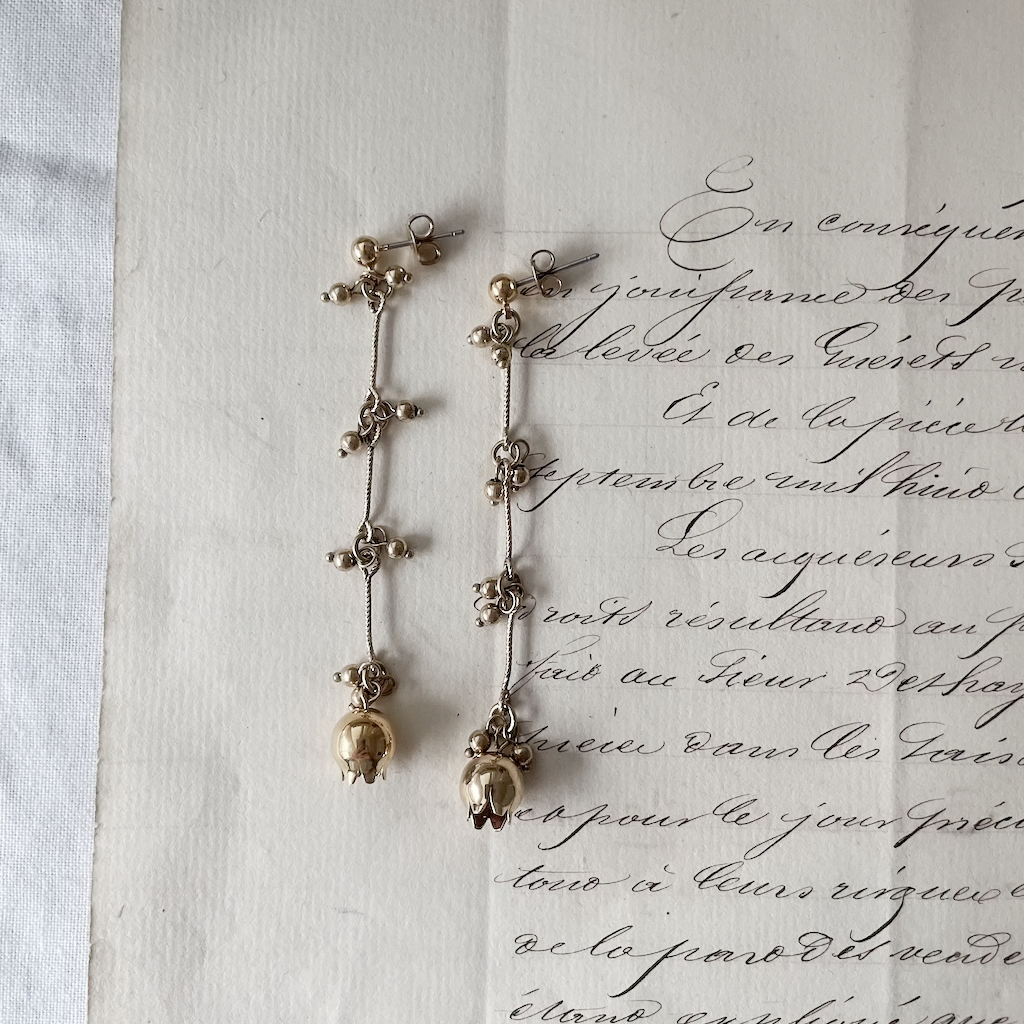 En conséquen
en jouissance des p
la levée des Guérets
Et de la pièce
Septembre mil huit
Les acquéreurs
droits résultant au
fait au Sieur Deshay
pièce dans les
pour le jour
tant à leurs risques
de la part des vende
étant expliqué que